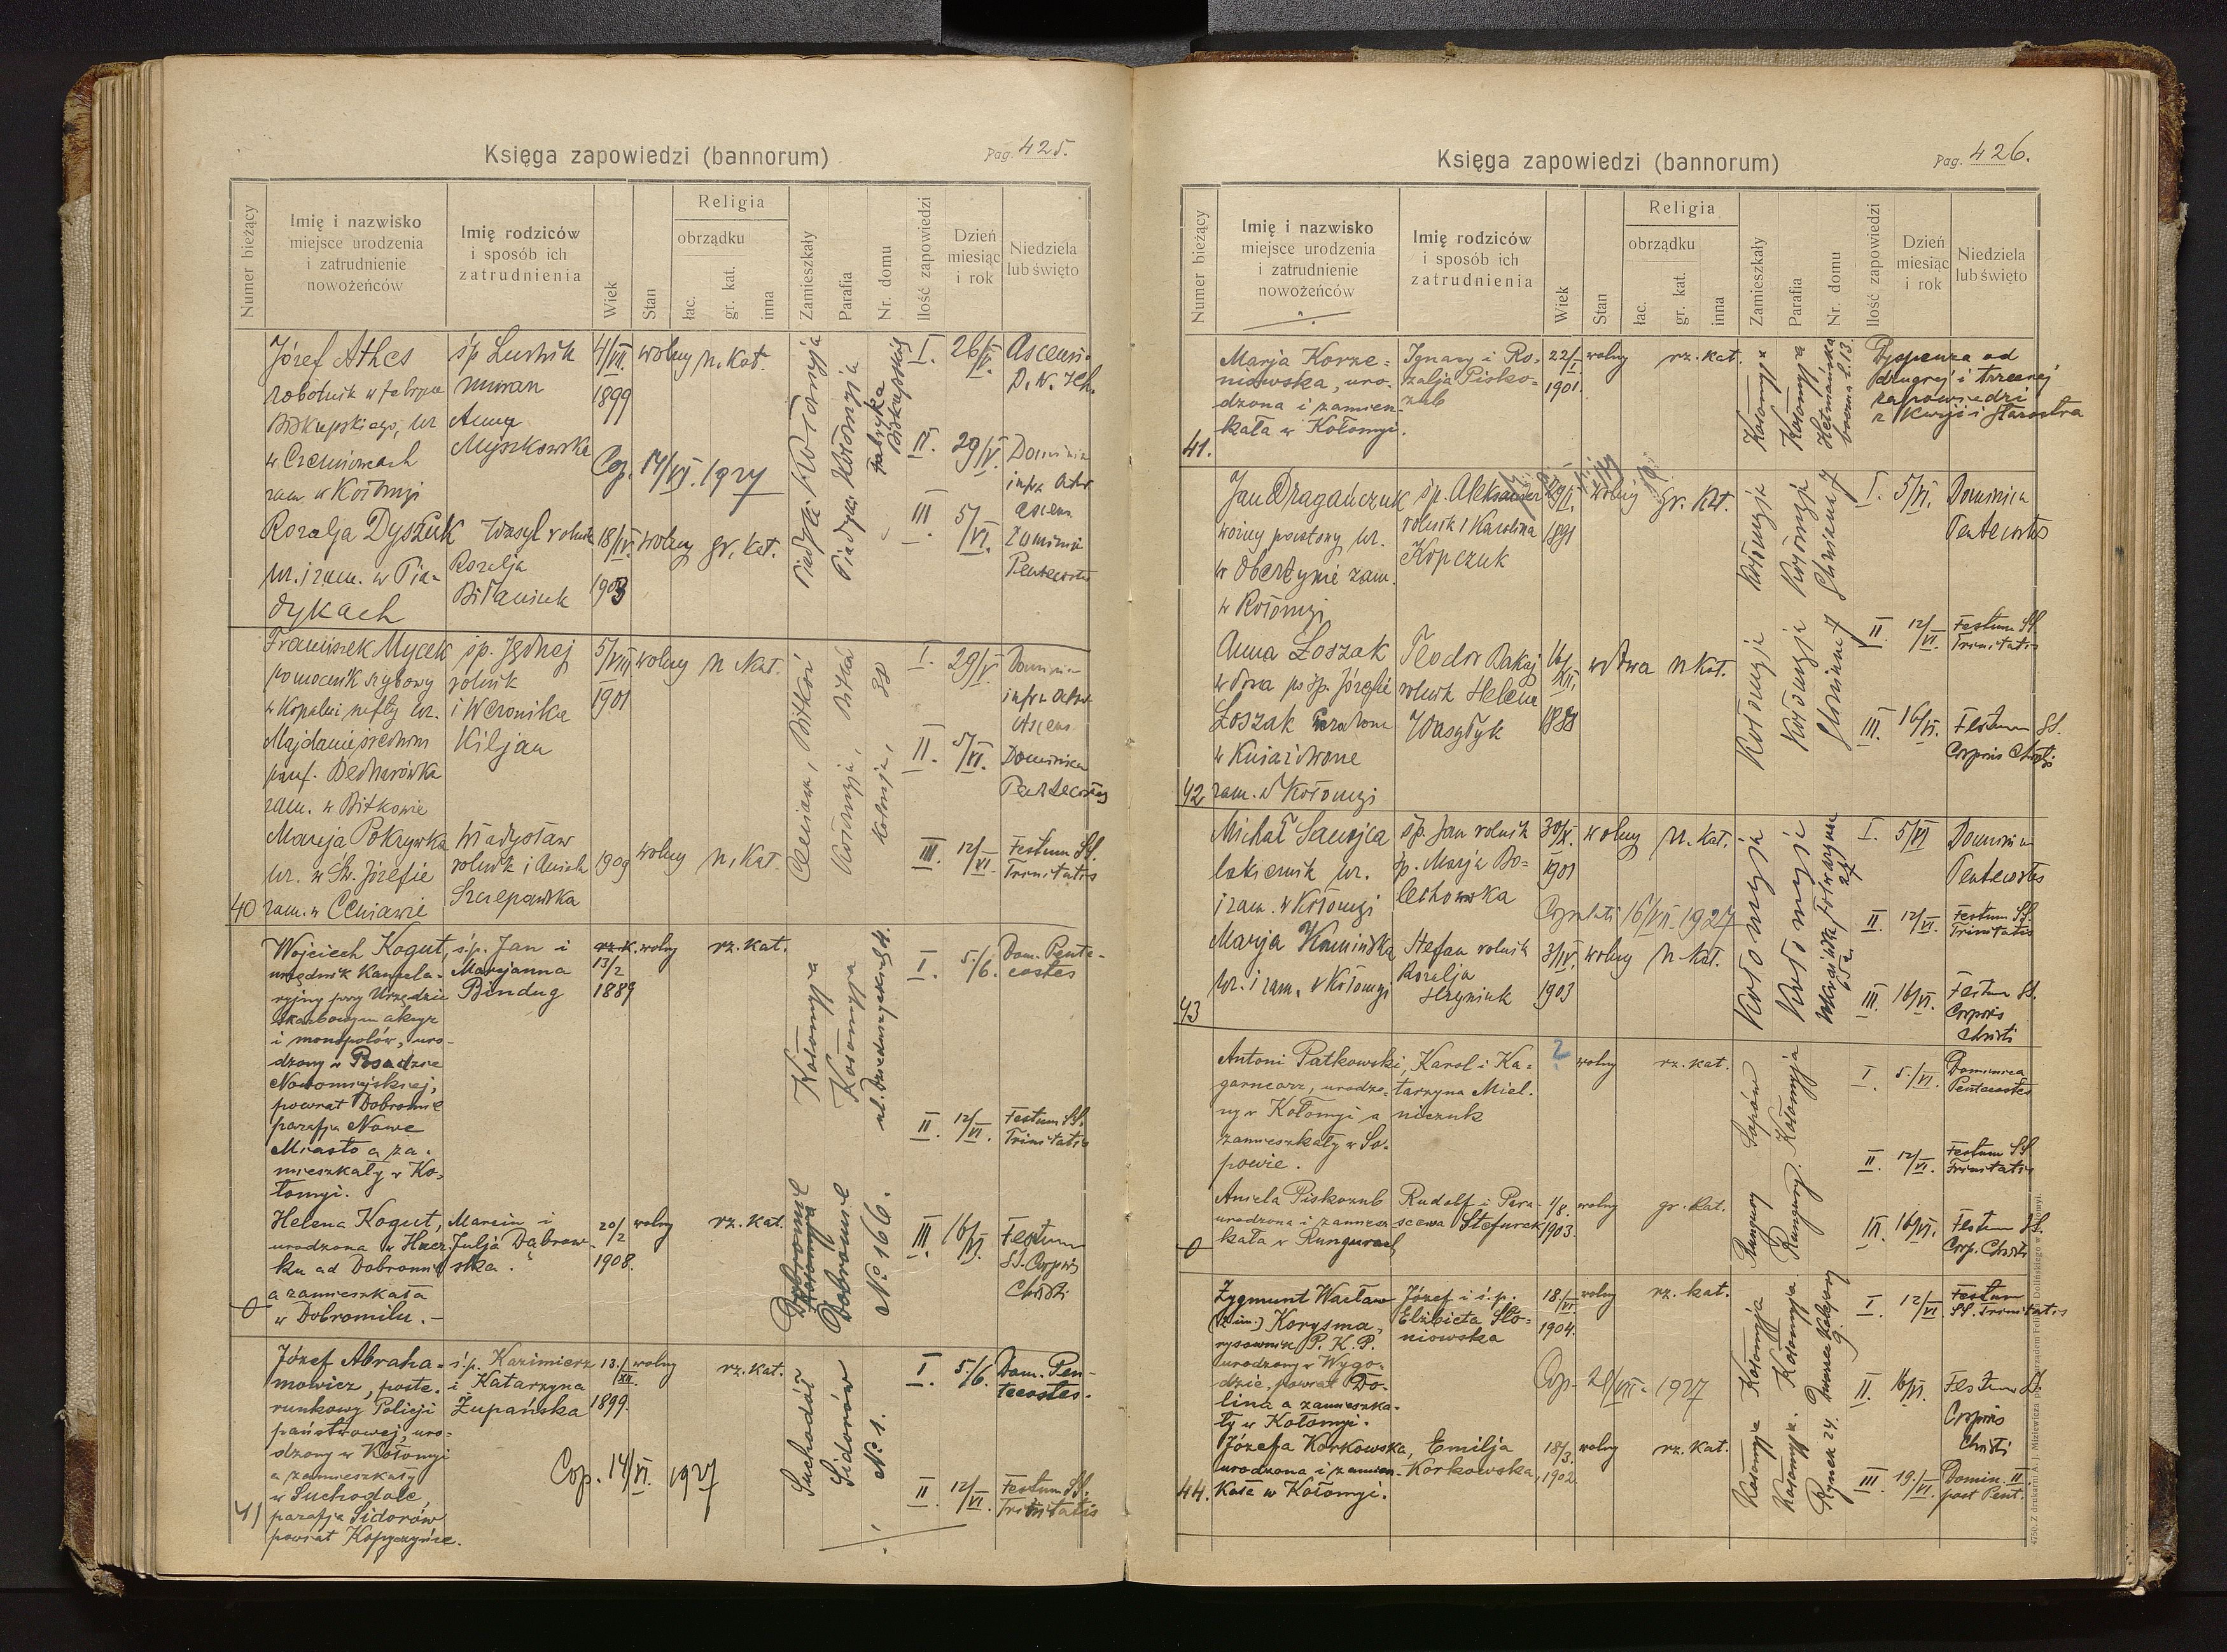 Księga zapowiedzi (bannorum)
Pag. 425.
Numer bieżący
Imię i nazwisko
miejsce urodzenia
i zatrudnienie
nowożeńców
Imię rodziców
i sposób ich
zatrudnienia
Wiek
Stan
Religia
obrządku
łac.
gr. kat.
inna
Zamieszkały
Parafia
Nr. domu
Ilość zapowiedzi
Dzień
miesiąc
i rok
Niedziela
lub święto
Józef Athes
robotnik w fabryce
Biskupskiego, ur
w Czerniowcach
zam. w Kołomyi
śp Ludwik
muran
Anna
Myszkowska
4/VII.
1899
wolny
rz. Kat.
Cop. 14/VI. 1927
Piadyki Kołomyja
Piadyki Kołomyja
Fabryka
Biskupskiej
I. 26/V. Ascensi.
D. N. J. Ch.
II. 29/V. Dominica
infra Octav
Ascens.
III. 5/VI. Dominica
Pentecostes
Rozalja Dyszuk
ur. i zam. w Pia-
dykach
Wasyl rolnik
Rozalja
Bilaniuk
18/IV.
1903
wolny
gr. Kat.
Franciszek Mycek
pomocnik szybowy
w Kopalni nefty ur.
Majdanie średnim
paraf. Bednarówka
zam. w Bitkowie
śp. Jędrzej
rolnik
i Weronika
Kiljan
5/VIII
1901
wolny
rz Kat.
Ceniawa, Bitków
Kołomyja, Bitków
Kolonja, 38
I. 29/V. Dominica
infra Octav
Ascens.
II. 5/VI. Dominica
Pentecostes
III. 12/VI. Festum SS.
Trinitatis
40
Marja Pokrywka
ur. w Św. Józefie
zam. w Ceniawie
Władysław
rolnik i Aniela
Szczepańska
1909
wolny
rz. Kat.
Wojciech Kogut,
urzędnik kancela-
ryjny przy Urzędzie
skarbowym akcyz
i monopolów, uro-
dzony w Posadzie
Nowomiejskiej,
powiat Dobromil
parafja Nowe
Miasto a za-
mieszkały w Ko-
łomyi.
ś.p. Jan i
Marjanna
Bindug
rz. k.
13/2
1889
wolny
rz. kat.
Kołomyja
Kołomyja
ul. Dzieduszyckich 4.
I. 5/6. Dom. Pente-
costes
II. 12/VI. Festum SS.
Trinitatis
III. 16/VI. Festum
SS. Corporis
Christi
0
Helena Kogut,
urodzona w Hucz-
ku ad Dobromil
a zamieszkała
w Dobromilu.
Marcin i
Julja Dąbrow-
ska.
20/2
1908.
wolny
rz. kat.
Dobromil
Kołomyja
Dobromil
№ 166.
41
Józef Abraha-
mowicz, poste-
runkowy Policji
państwowej, uro-
dzony w Kołomyi
a zamieszkały
w Suchodole,
parafja Sidorów
powiat Kopyczyńce.
ś.p. Kazimierz
i Katarzyna
Żupańska
13./XII.
1899.
wolny
rz. kat.
Cop. 14/VI. 1927
Suchodół
Sidorów
№ 1.
I. 5./6. Dom. Pen-
tecostes.
II. 12/VI. Festum SS.
Trinitatis
Księga zapowiedzi (bannorum)
Pag. 426.
Numer bieżący
Imię i nazwisko
miejsce urodzenia
i zatrudnienie
nowożeńców
Imię rodziców
i sposób ich
zatrudnienia
Wiek
Stan
Religia
obrządku
łac.
gr. kat.
inna
Zamieszkały
Parafia
Nr. domu
Ilość zapowiedzi
Dzień
miesiąc
i rok
Niedziela
lub święto
41.
Marja Korze-
niowska, uro-
dzona i zamiesz-
kała w Kołomyi.
Ignacy i Ro-
zalja Pisko-
zub
22/I
1901.
wolny
rz. kat.
Kołomyja
Kołomyja
Hetmańska
boczna l. 13.
Dyspenza od
drugiej i trzeciej
zapowiedzi
z Kurji i Starostwa
Jan Dragańczuk
woźny pocztowy ur.
w Obertynie zam.
w Kołomyi
śp. Aleksander
rolnik i Karolina
Kopczuk
1891
wolny
gr. Kat.
Kołomyja
Kołomyja
I. 5/VI. Dominica
Pentecostes
II. 12/VI. Festum SS.
Trinitatis
III. 16/VI. Festum SS.
Corporis Christi
42
Anna Łoszak
wdowa po śp. Józefie
Łoszak urodzona
w Kniaźdworze
zam. w Kołomyi
Teodor Dakaj
rolnik Helena
Wasyłyk
16/XII.
1888
wdowa
rz Kat.
Kołomyja
Kołomyja
Michał Sanojca
lakiernik ur.
i zam. w Kołomyi
śp. Jan rolnik
śp. Marja Bo-
lechowska
30/X.
1901
wolny
rz. Kat.
Copulati 16/VII. 1927
Kołomyja
Kołomyja
I. 5/VI Dominica
Pentecostes
II. 12/VI. Festum SS.
Trinitatis
III. 16/VI. Festum SS.
Corporis
Christi
43
Marja Kamińska
ur. i zam. w Kołomyi
Stefan rolnik
Rozalja
Hryniuk
3/IV.
1903
wolny
rz Kat.
Antoni Patkowski,
garncarz, urodzo-
ny w Kołomyi a
zamieszkały w So-
powie.
Karol i Ka-
tarzyna Miel-
niczuk
?
wolny
rz. kat.
Sopów
Kołomyja
I. 5./VI. Dominica
Pentecostes
II. 12/VI. Festum SS.
Trinitatis
III. 16/VI. Festum SS.
Corp. Christi
0
Aniela Piskozub
urodzona i zamiesz-
kała w Rungurach
Rudolf i Para-
scewa Stefurak
1/8.
1903.
wolny
gr. kat.
Rungury
Rungury.
Zygmunt Wacław
(2 im.) Korysma,
rysownik P. K. P.
urodzony w Wygo-
dzie, powiat Do-
lina a zamieszka-
ły w Kołomyi.
Józef i ś.p.
Elżbieta Sło-
niowska
18/VI
1904.
wolny
rz. kat.
Cop. 21/VII. 1927
Kołomyja
Kołomyja.
I. 12/VI Festum
SS. Trinitatis
II. 16/VI. Festum SS.
Corporis
Christi
III. 19./VI. Domin. II
post Pent.
44.
Józefa Korkowska,
urodzona i zamiesz-
kała w Kołomyi.
Emilja
Korkowska
18/3.
1902.
wolny
rz. kat.
Kołomyja
Kołomyja.
Rynek 24.
4750. Z drukarni A. J. Miziewicza pod zarządem Feliksa Dolińskiego w Kołomyi.